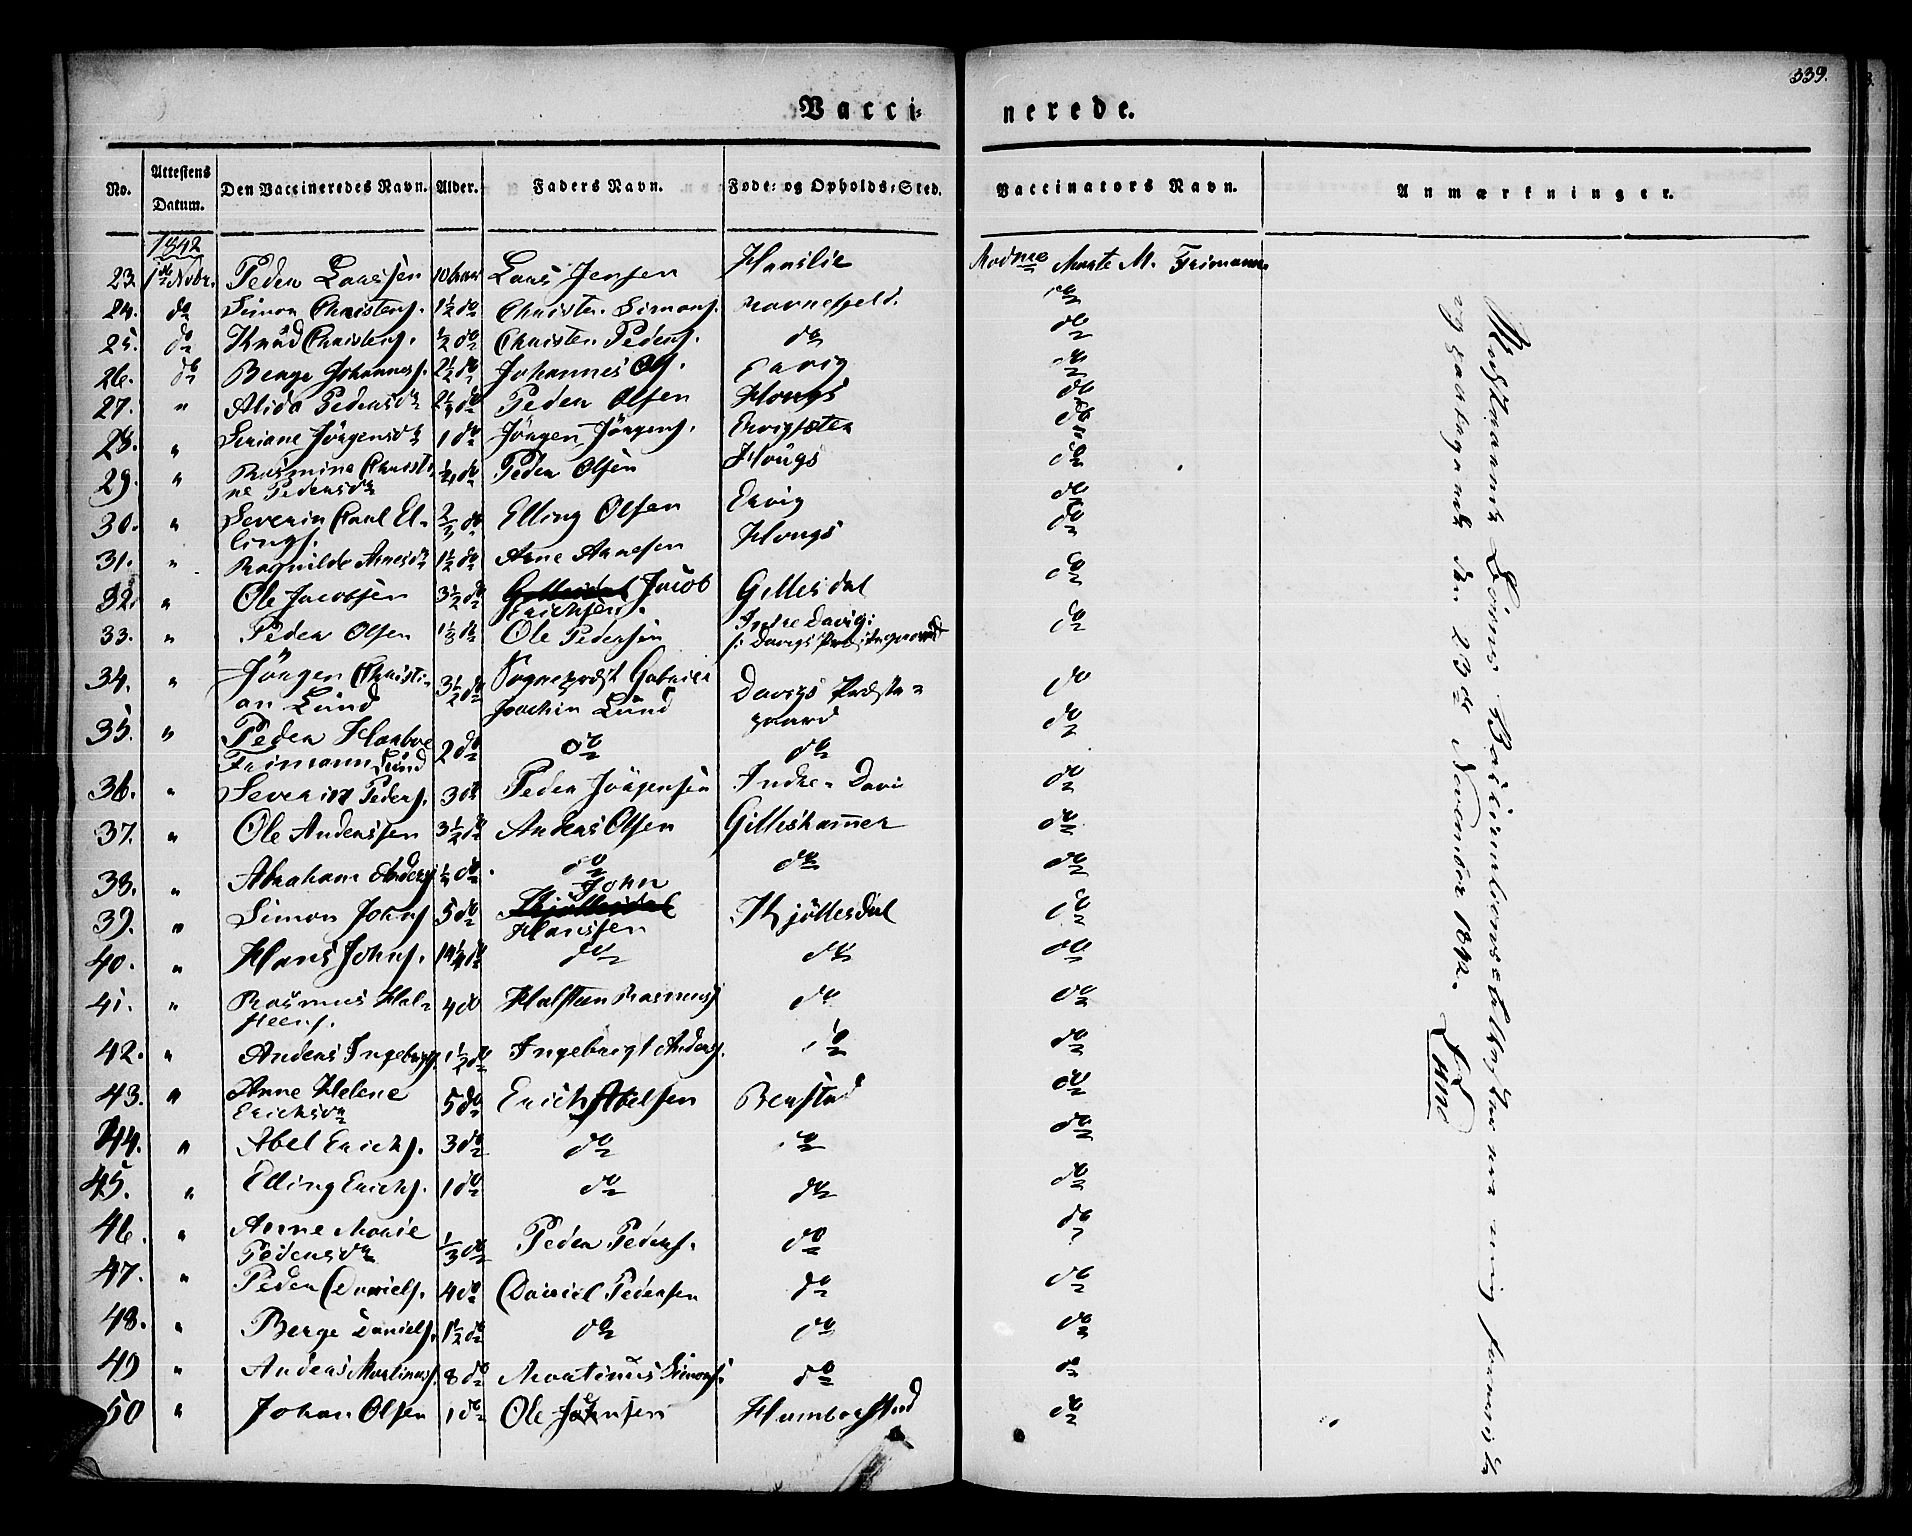 339.
Vacci=
nerede.
No.
Attestens Datum.
Den Vaccineredes Navn.
Alder.
Faders Navn.
Føde= og Opholds=Sted.
Vaccinators Navn.
Anmærkninger.
1842
23. 1ste Novbr. Peder Larssen 10 Lars Jensen Hanslie Madme Marte M. Friman
24. do Simon Christens. 1½ do Christen Simons. Navnefjeld. do
25. do Knud Christens. ½ do Christen Peders. do do
26. do Berge Johannes. 2½ do Johannes Ols. Ervig do
27. " Alida Pedersdr do Peder Olsen Hougs do
28. " Seriane Jörgensdr 1 do Jörgen Jörgens. Ervigsæter do
29. " Rasmine Christi
ne Pedersdr do Peder Olsen Hougs do
30. " Severin Carl El=
lings. ⅔ do Elling Olsen Ervig do
31. " Ragnilde Arnesdr 1½ do Arne Arnesen Hougs do
32. " Ole Jacobsen 3½ do Jacob
Erichsen. Gillesdal do
33. " Peder Olsen 1⅓ do Ole Pedersen Indre Davig:
do
34. " Jörgen Christi=
an Lund 3½ do Sognepræst Gabriel
Joachim Lund Davigs Præste=
gaard do
35. " Peder Harboe
Friman Lund 2 do do do do
36. " Severin Peders. 3 do Peder Jörgensen Indre=Davi do
37. " Ole Anderssen 3½ do Anders Olsen Gilleshammer do
38. " Abraham Anders. do do do do
39. " Simon Johns. 5 do John
Hanssen Kjöllesdal do
40. " Hans Johns. do do do do
41. " Rasmus Hal=
steens. 4 do Halsten Rasmuss. do do
42. " Anders Ingebrigs. 1½ do Ingebrigt Anders. do do
43. " Anne Helene
Erichsdr 5 do Erich Abelsen Berstad do
44. " Abel Erichs. 3 do do do do
45. " Elling Erichs. 1 do do do do
46. " Anne Marie
Pedersdr ⅓ do Peder Peders. do do
47. " Peder Daniels. 4 do Daniel Pedersen do do
48. " Berge Daniels. 1½ do do do do
49 " Anders Martinus. 8 do Martinus Simons. do do
50 " Johan Olsen 1 do Ole Jensen Humborstad do
og den 23de November 1842.
Lund